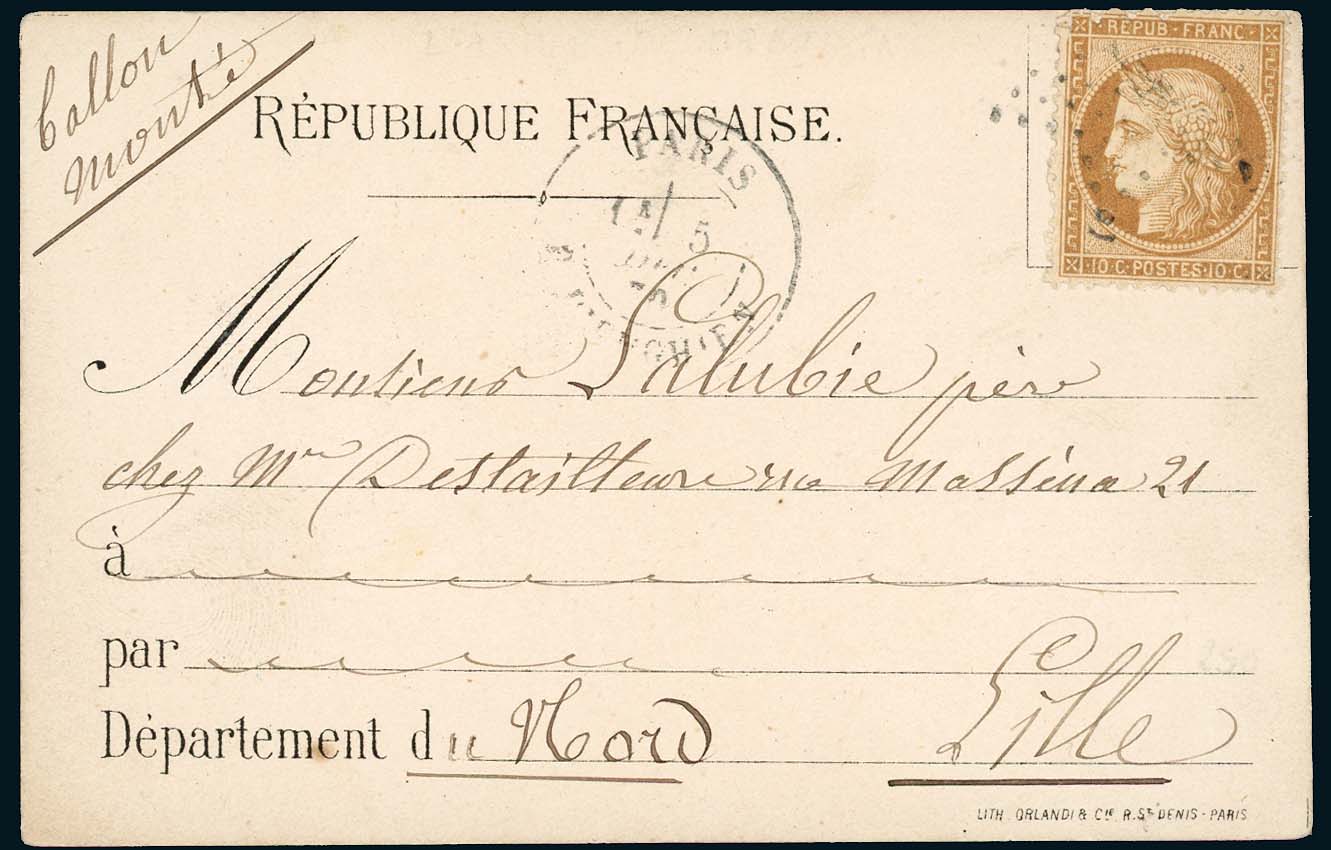 ballon
monté
RÉPUBLIQUE FRANÇAISE.
REPUB·FRANC·
10·C·POSTES·10·C·
PARIS
5
ENGHIEN
Monsieur Salubie père
chez Mr Destailleurs rue Masséna 21
à
par
Département du Nord Lille
LITH. ORLANDI & Cie R. St DENIS - PARIS